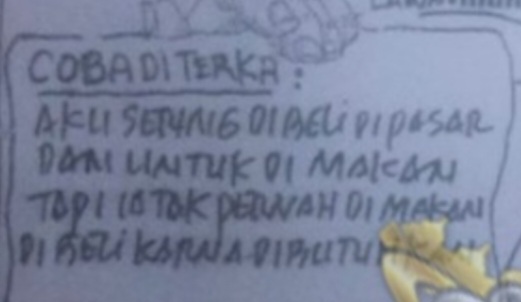 COBA DI TERKA :
AKU SERING DI BELI DI PASAR
DAN UNTUK DI MAKAN
TAPI IA TAK PERNAH DI MAKAN
DI BELI KARNA